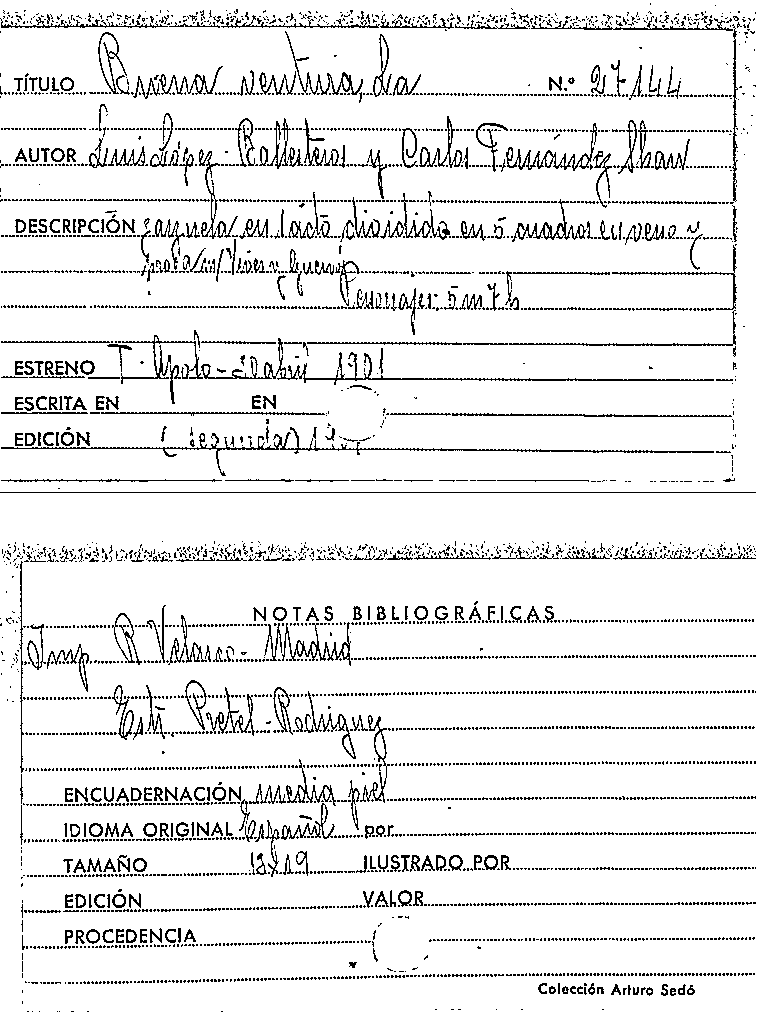 TÍTULO Buena ventura, La N.º 27144
AUTOR Luis López-Ballesteros y Carlos Fernández Shaw
DESCRIPCIÓN zarzuela en 1 acto dividido en 5 cuadros en verso y
prosa m/ Vives y Guervós
Personajes: 5 m 7 h
ESTRENO T. Apolo - abril 1901
ESCRITA EN EN
EDICIÓN (segunda)
NOTAS BIBLIOGRÁFICAS
Imp R Velasco - Madrid
Estr. Pretel - Rodriguez
ENCUADERNACIÓN media piel
IDIOMA ORIGINAL Español por
TAMAÑO 13x19 ILUSTRADO POR
EDICIÓN VALOR
PROCEDENCIA
Colección Arturo Sedó